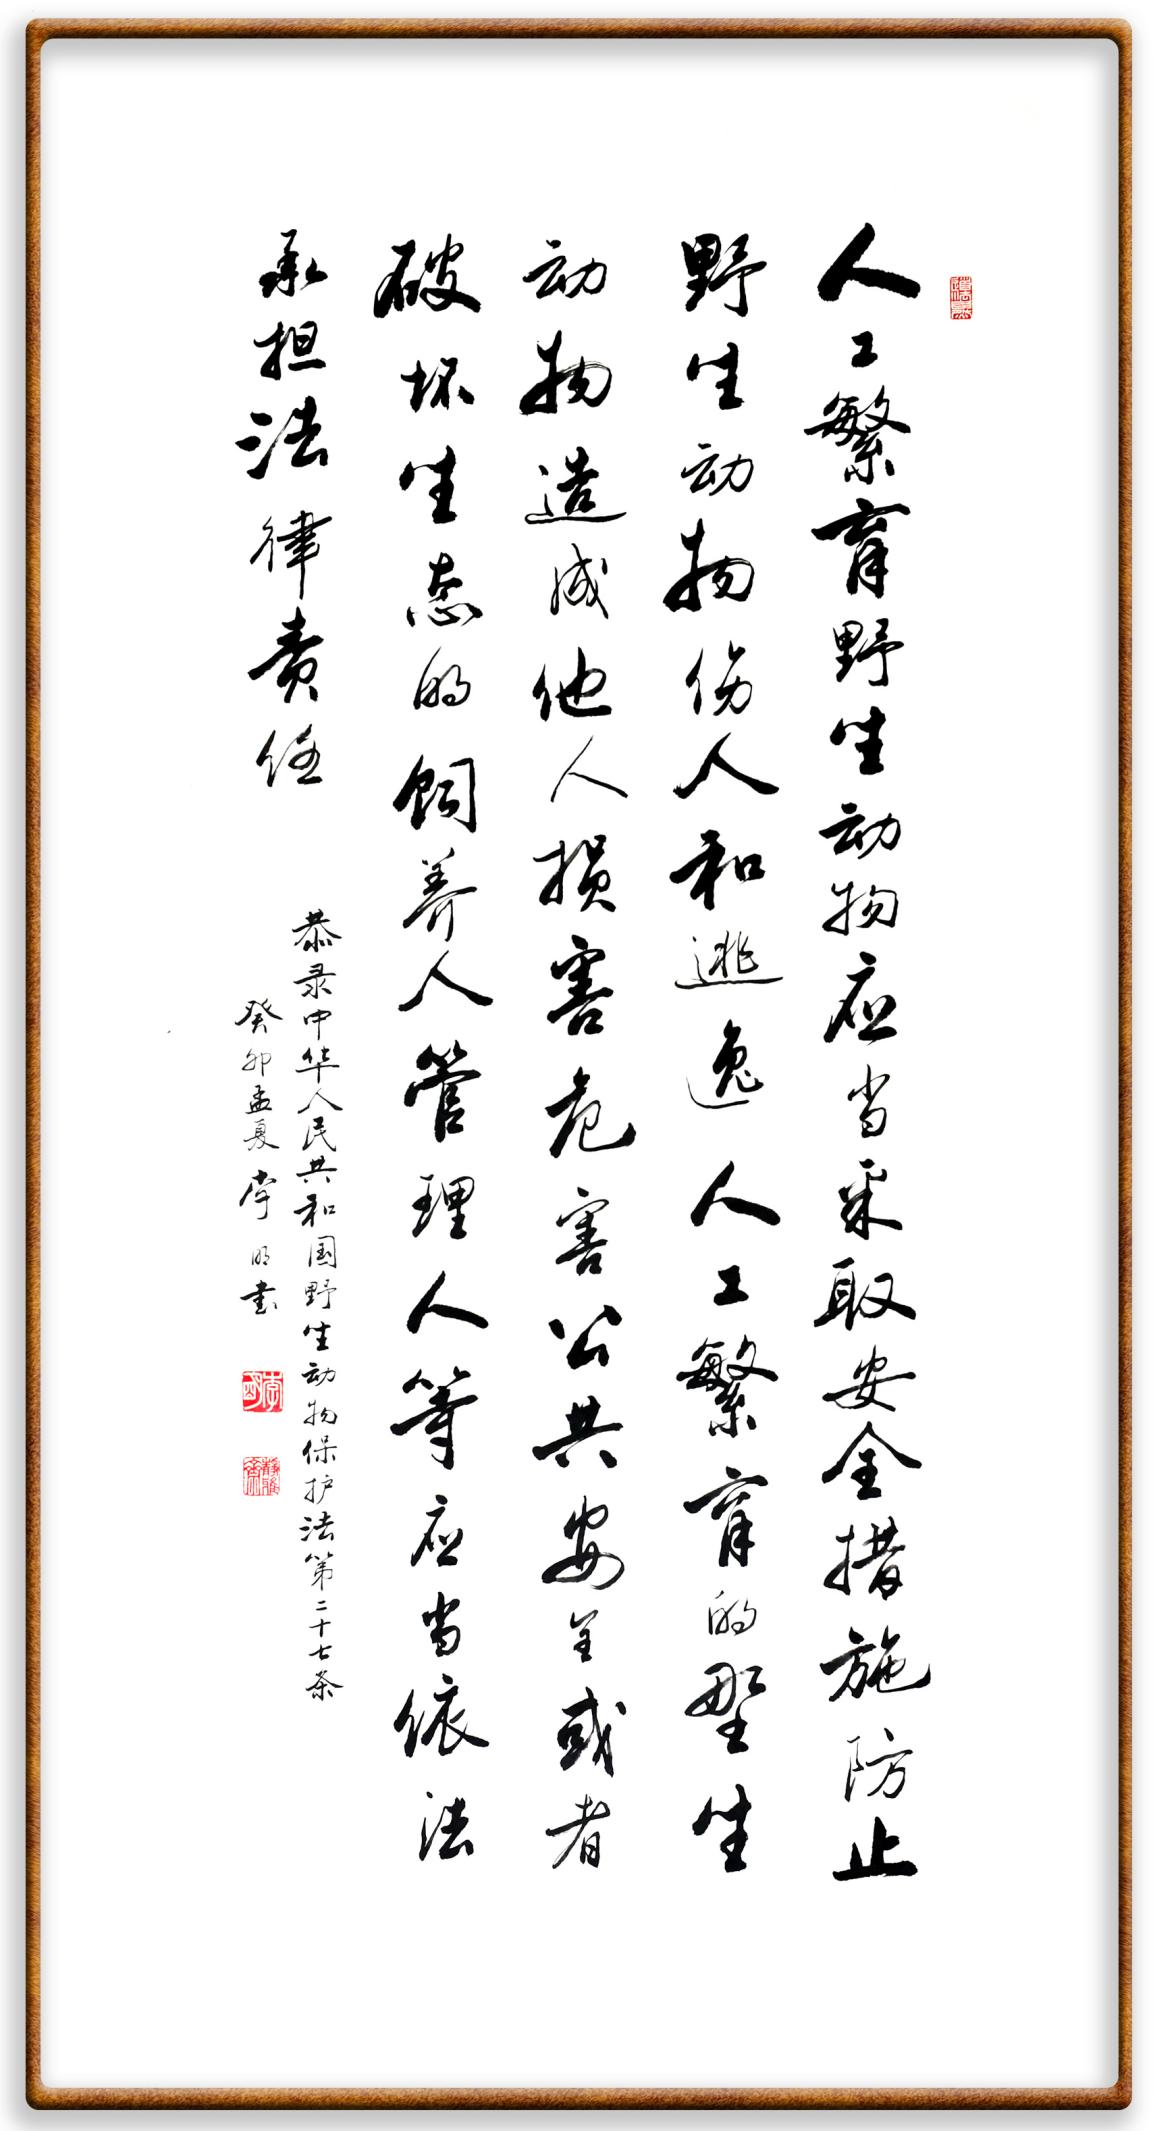 人工繁育野生动物应当采取安全措施防止
野生动物伤人和逃逸人工繁育的野生
动物造成他人损害危害公共安全或者
破坏生态的饲养人管理人等应当依法
承担法律责任
恭录中华人民共和国野生动物保护法第二十七条
癸卯孟夏李明书